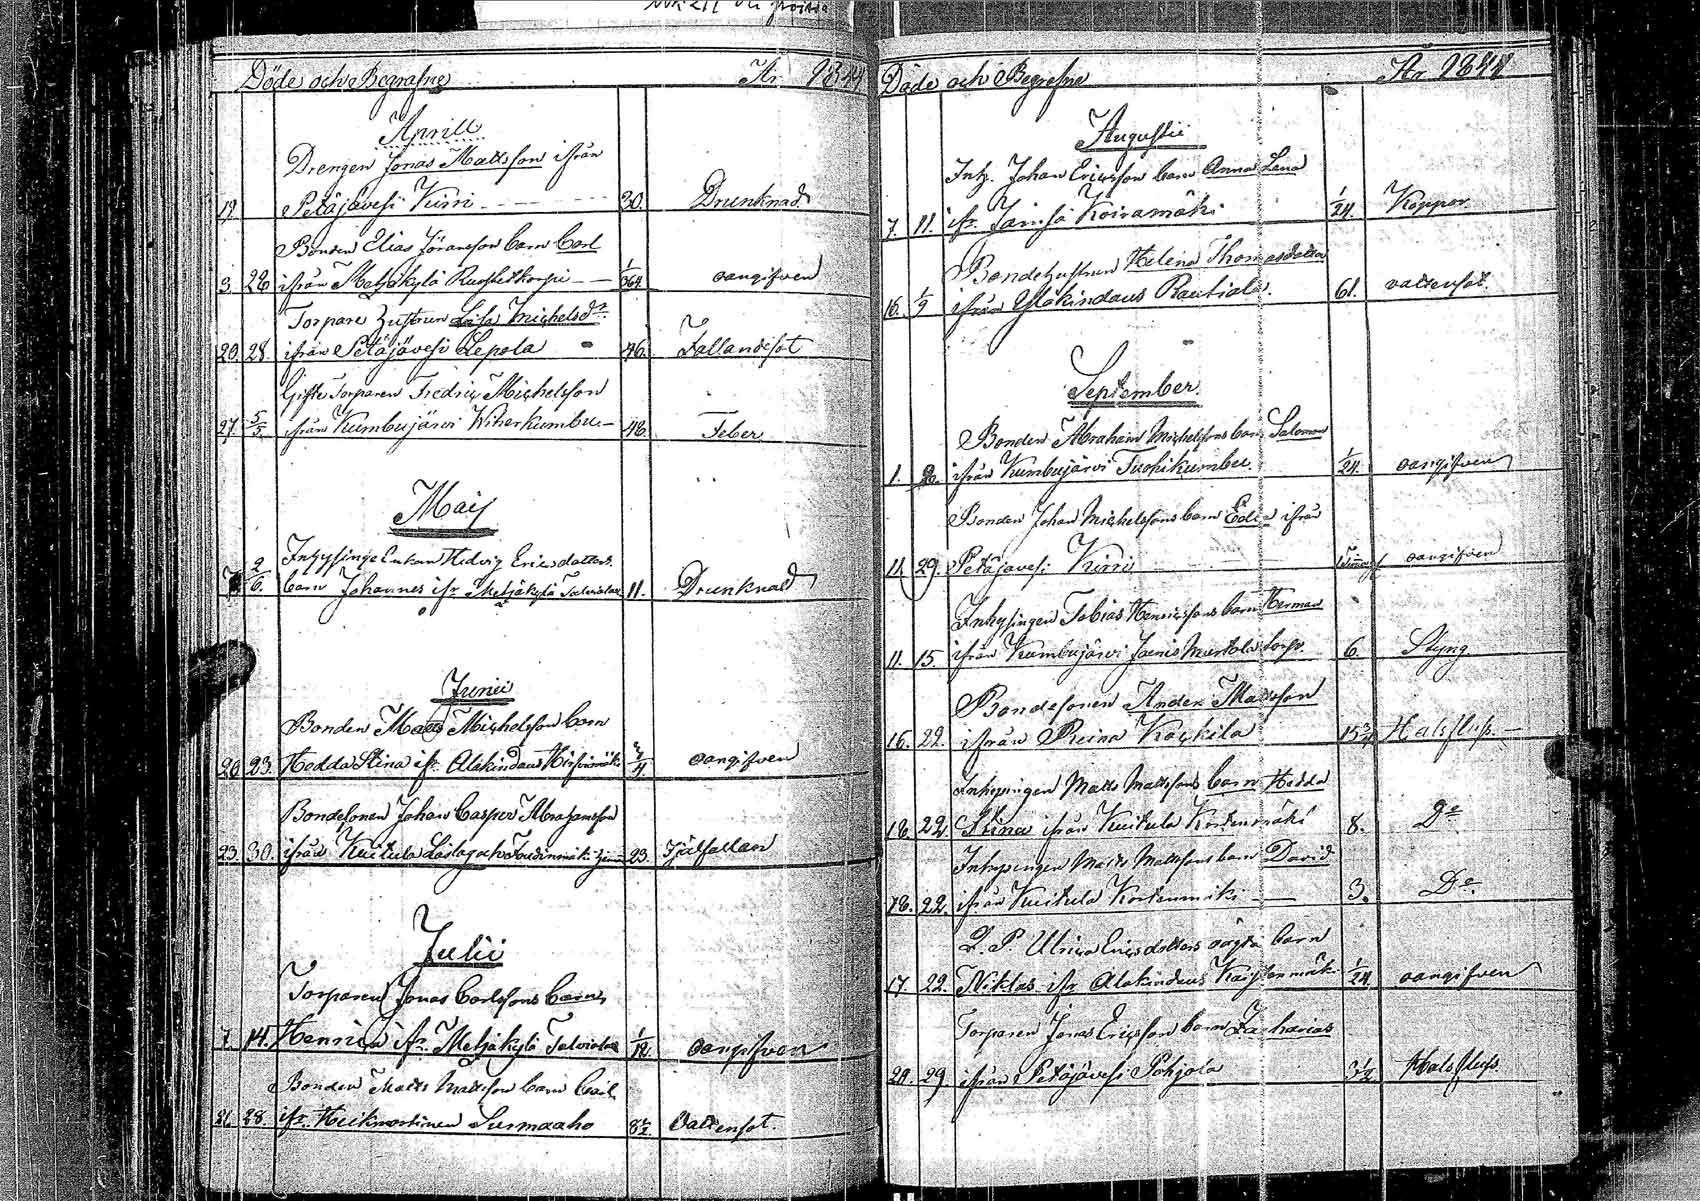 Döde och Begrafne År 1844
Aprill
Drengen Jonas Mattsson ifrån
19. Petäjävesi Kuiri 30. Drunknad
Bonden Elias Göransson barn Carl
3 28 ifrån Metjäkylä 1/364 oangifven
Torpare Hustrun Lisa Michelsdr.
20. 28. ifrån Petäjävesi Lepola 46. Fallandesot
Gifte Torparen Fredric Michelsson
27. 5/5 ifrån Kumbujärvi Wiherkumbu 48. Feber
Maij
Inhysinge Enkan Hedvig Ericsdotters
2/6. barn Johannes ifr. Metjäkylä Talviala 11. Drunknad
Junii
Bonden Matts Michelsson barn
20 23. Hedda Stina ifr. Alakindaus oangifven
Bondesonen Johan Casper Abrahamsson
23. 30. ifrån Kuitula 23. Ihjälfallen
Julii
Torparen Jonas Carlssons barn
7. 14. Henric ifr. Metjäkylä Talviala 1/12. oangifven
Bonden Matts Mattsson barn Carl
21. 28. ifr. Heikmortinen Surmaaho 8 1/2. Vattensot.
Döde och Begrafne År 1844
Augustii
Inh. Johan Ericsson barn Anna Lena
7. 11. ifr. Jämsä Koiramäki 1/24. Koppor
Bondehustrun Helena Thomasdotter
16. 1/9 ifrån Yläkindaus Rautiala 61. vattensot.
September.
Bonden Abraham Michelssons barn Salomon
1. 8. ifrån Kumbujärvi Tuohikumbu. 1/24. oangifven
Bonden Johan Michelssons barn Edla ifrån
11 29 Petäjävesi Kuiri oangifven
Inhysingen Tobias Henricssons barn Herman
11. 15. ifrån Kumbujärvi torp. 6. Styng
Bondesonen Anders Mattsson
16. 22. ifrån Puina Kackila 15 3/4 Halsfluss.
Inhysingen Matts Mattssons barn Hedda
18 22. Stina ifrån Kuitula Kortenmäki 8. Do
Inhysingen Matts Mattssons barn David
18. 22. ifrån Kuitula Kortenmäki 3. Do
L. P. Ulrica Ericsdotters oägta barn
17 22. Niklas ifr Alakindaus 1/24. oangifven
Torparen Jonas Ericsson barn Zacharias
20. 29. ifrån Petäjävesi Pohjola 3 1/2 Halsfluss.